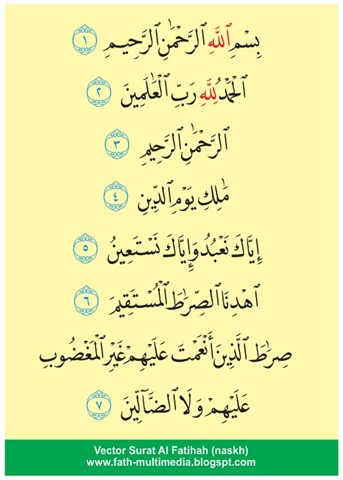 بِسْمِ ٱللَّهِ ٱلرَّحْمَٰنِ ٱلرَّحِيمِ ١
ٱلْحَمْدُ لِلَّهِ رَبِّ ٱلْعَٰلَمِينَ ٢
ٱلرَّحْمَٰنِ ٱلرَّحِيمِ ٣
مَٰلِكِ يَوْمِ ٱلدِّينِ ٤
إِيَّاكَ نَعْبُدُ وَإِيَّاكَ نَسْتَعِينُ ٥
ٱهْدِنَا ٱلصِّرَٰطَ ٱلْمُسْتَقِيمَ ٦
صِرَٰطَ ٱلَّذِينَ أَنْعَمْتَ عَلَيْهِمْ غَيْرِ ٱلْمَغْضُوبِ
عَلَيْهِمْ وَلَا ٱلضَّآلِّينَ ٧
Vector Surat Al Fatihah (naskh)
www.fath-multimedia.blogspt.com